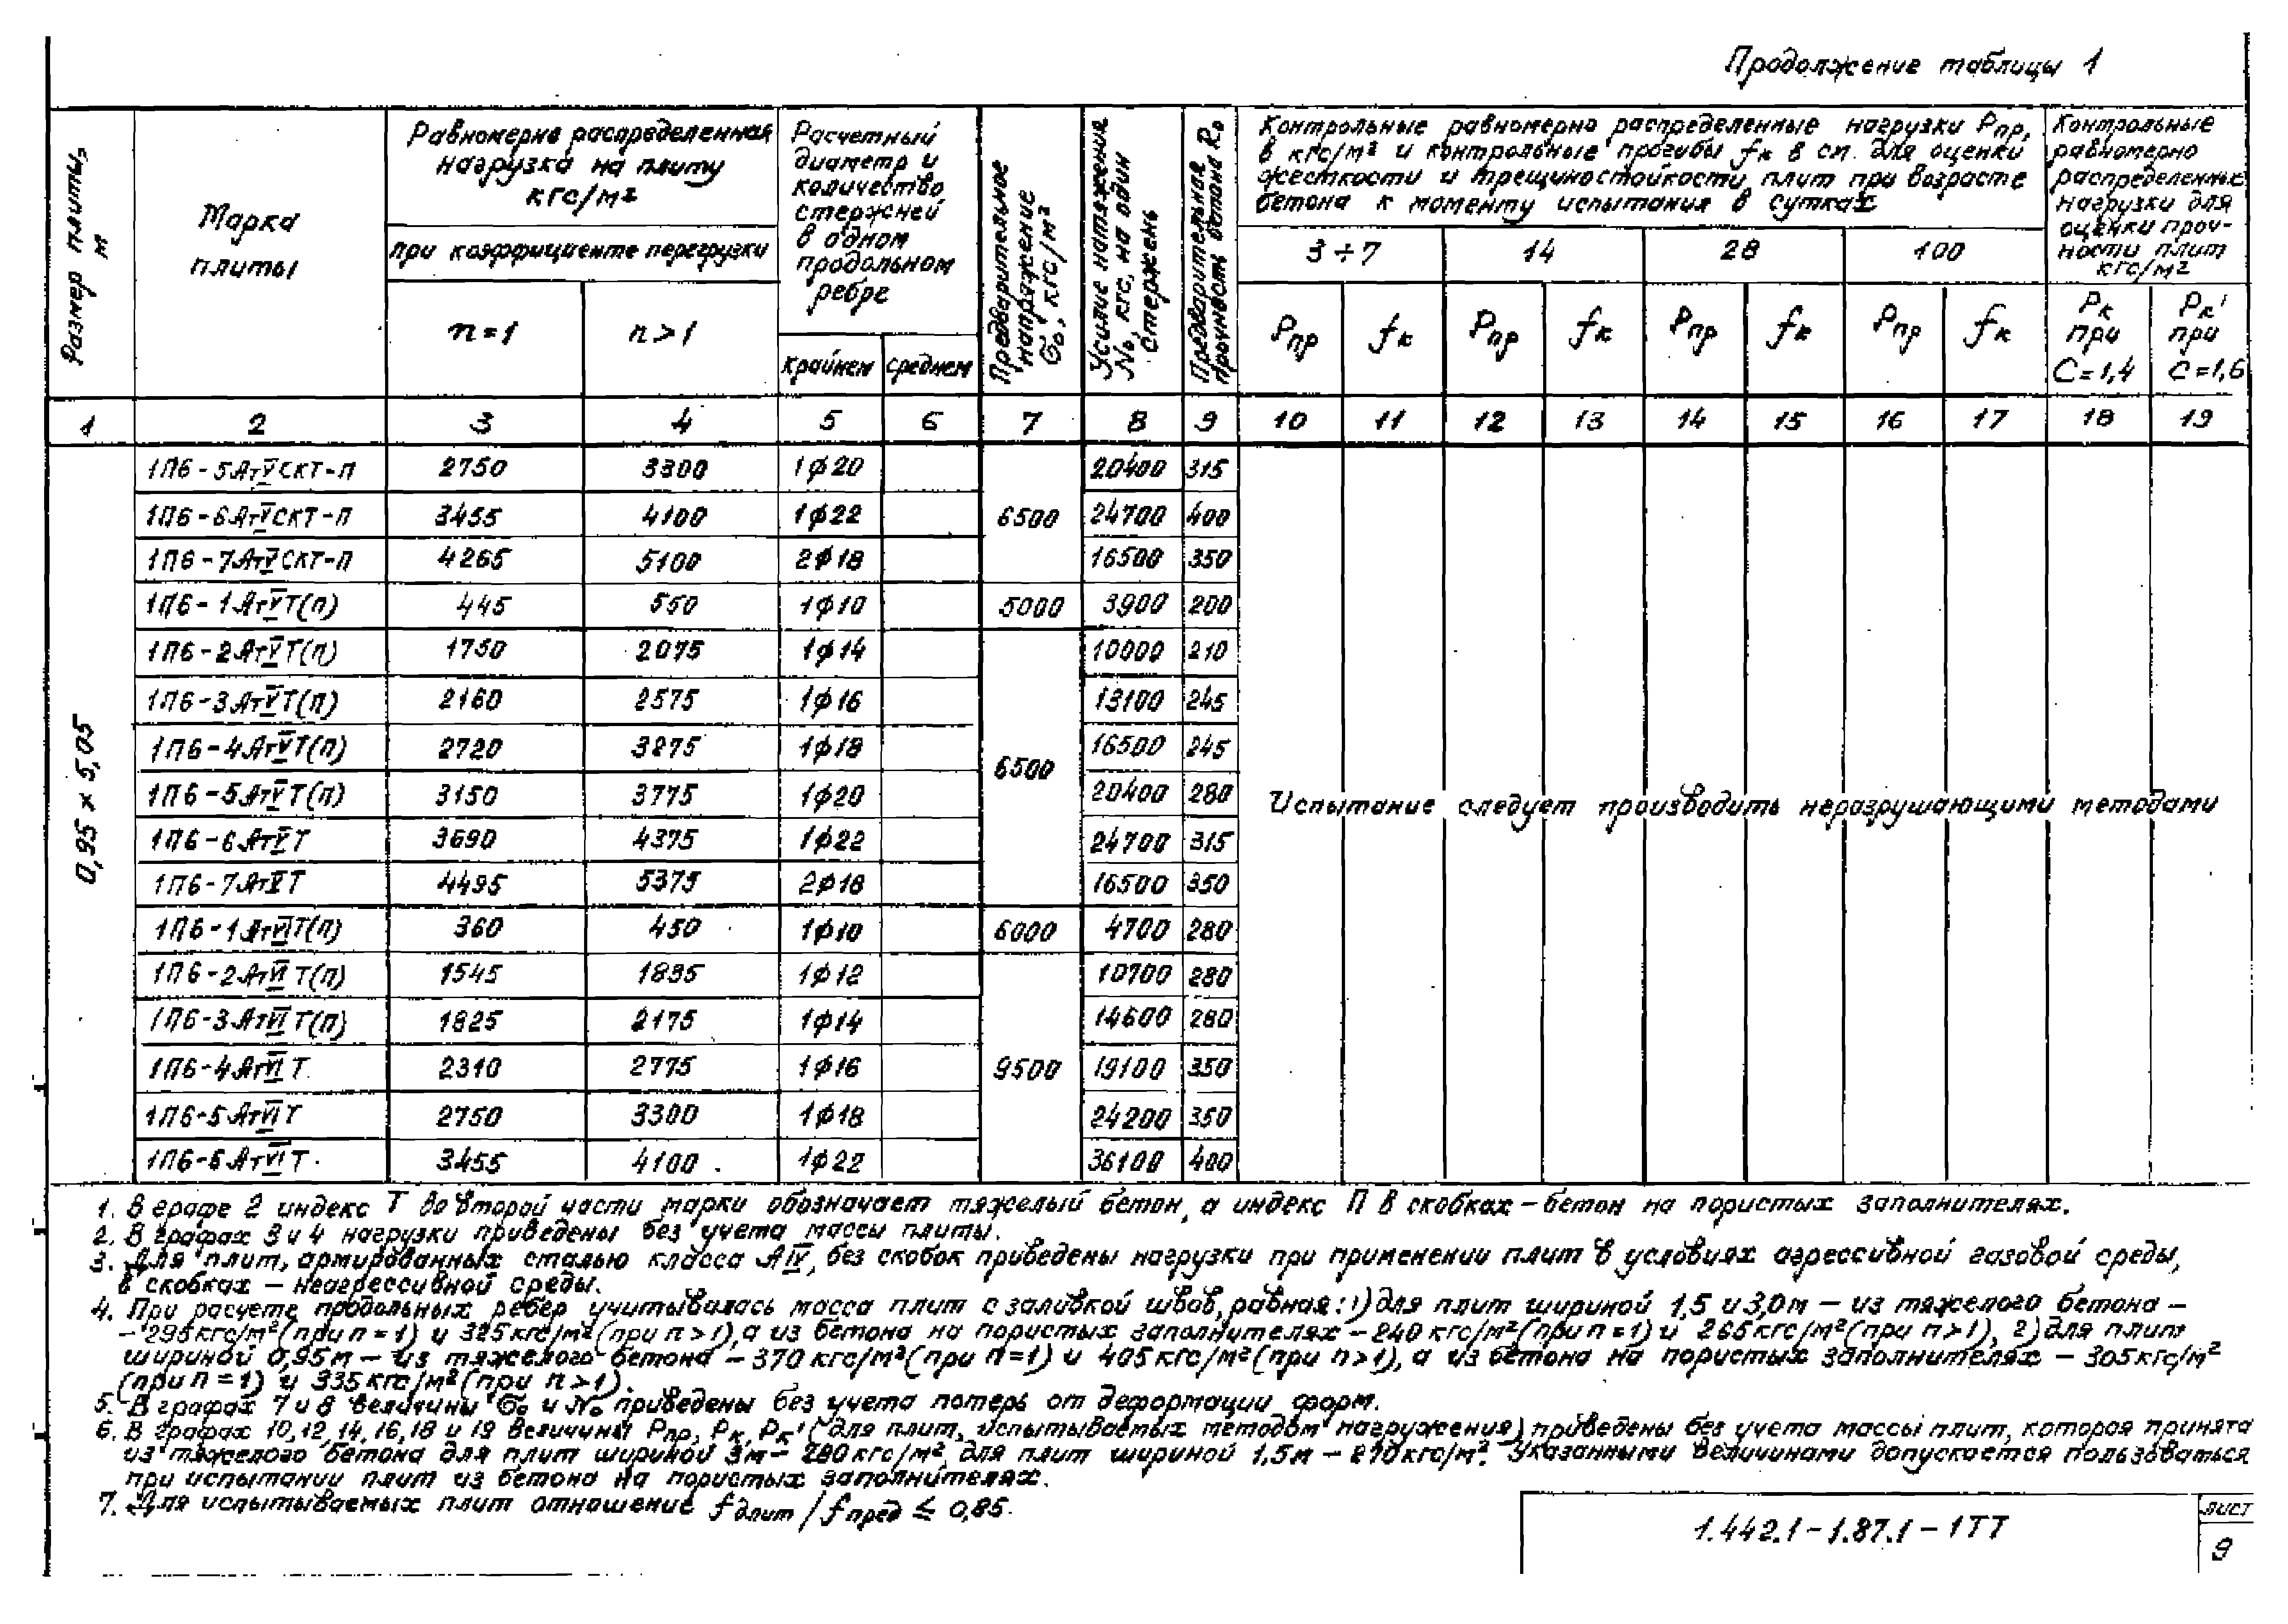 Продолжение таблицы 1
Размер плиты, м
Марка плиты
Равномерно распределенная нагрузка на плиту кгс/м²
при коэффициенте перегрузки
n=1
n>1
Расчетный диаметр и количество стержней в одном продольном ребре
крайнем
среднем
Предварительное напряжение σо, кгс/м²
Усилие натяжения Nо, кгс, на один стержень
Предварительная прочность бетона Rо
Контрольные равномерно распределенные нагрузки Рпр,
в кгс/м² и контрольные прогибы fк в см. для оценки
жесткости и трещиностойкости плит при возрасте
бетона к моменту испытания в сутках
3÷7 14 28 100
Рпр fк Рпр fк Рпр fк Рпр fк
Контрольные равномерно распределенные нагрузки для оценки проч-ности плит кгс/м²
Рк при С=1,4
Рк' при С=1,6
1 2 3 4 5 6 7 8 9 10 11 12 13 14 15 16 17 18 19
0,95 x 5,05
1П6-5АтⅤСКТ-П 2750 3300 1ϕ20 20400 315
1П6-6АтⅤСКТ-П 3455 4100 1ϕ22 6500 24700 400
1П6-7АтⅤСКТ-П 4265 5100 2ϕ18 16500 350
1П6-1АтⅤТ(П) 445 550 1ϕ10 5000 3900 200
1П6-2АтⅤТ(П) 1750 2075 1ϕ14 10000 210
1П6-3АтⅤТ(П) 2160 2575 1ϕ16 13100 245
1П6-4АтⅤТ(П) 2720 3275 1ϕ18 16500 245
6500
1П6-5АтⅤТ(П) 3150 3775 1ϕ20 20400 280
1П6-6АтⅤТ 3690 4375 1ϕ22 24700 315
1П6-7АтⅤТ 4495 5375 2ϕ18 16500 350
1П6-1АтⅥТ(П) 360 450 1ϕ10 6000 4700 280
1П6-2АтⅥТ(П) 1545 1835 1ϕ12 10700 280
1П6-3АтⅥТ(П) 1825 2175 1ϕ14 14600 280
1П6-4АтⅥТ 2310 2775 1ϕ16 9500 19100 350
1П6-5АтⅥТ 2750 3300 1ϕ18 24200 350
1П6-6АтⅥТ 3455 4100 1ϕ22 36100 400
Испытание следует производить неразрушающими методами
1. В графе 2 индекс Т во второй части марки обозначает тяжелый бетон, а индекс П в скобках – бетон на пористых заполнителях.
2. В графах 3 и 4 нагрузки приведены без учета массы плиты.
3. Для плит, армированных сталью класса АⅣ, без скобок приведены нагрузки при применении плит в условиях агрессивной газовой среды,
в скобках – неагрессивной среды.
4. При расчете продольных ребер учитывалась масса плит с заливкой швов, равная: 1) для плит шириной 1,5 и 3,0м – из тяжелого бетона –
– 295 кгс/м² (при n=1) и 325 кгс/м² (при n>1), а из бетона на пористых заполнителях – 240 кгс/м² (при n=1) и 265 кгс/м² (при n>1), 2) для плит
шириной 0,95м – из тяжелого бетона – 370 кгс/м² (при n=1) и 405 кгс/м² (при n>1), а из бетона на пористых заполнителях – 305 кгс/м²
(при n=1) и 335 кгс/м² (при n>1).
5. В графах 7 и 8 величины σо и Nо приведены без учета потерь от деформации форм.
6. В графах 10, 12, 14, 16, 18 и 19 величины Рпр, Рк, Рк' (для плит, испытываемых методом нагружения) приведены без учета массы плит, которая принята
из тяжелого бетона для плит шириной 3м – 280 кгс/м², для плит шириной 1,5м – 270 кгс/м². Указанными величинами допускается пользоваться
при испытании плит из бетона на пористых заполнителях.
7. Для испытываемых плит отношение fдлит / fпред ≤ 0,85.
1.442.1-1.87.1-1ТТ
лист
9